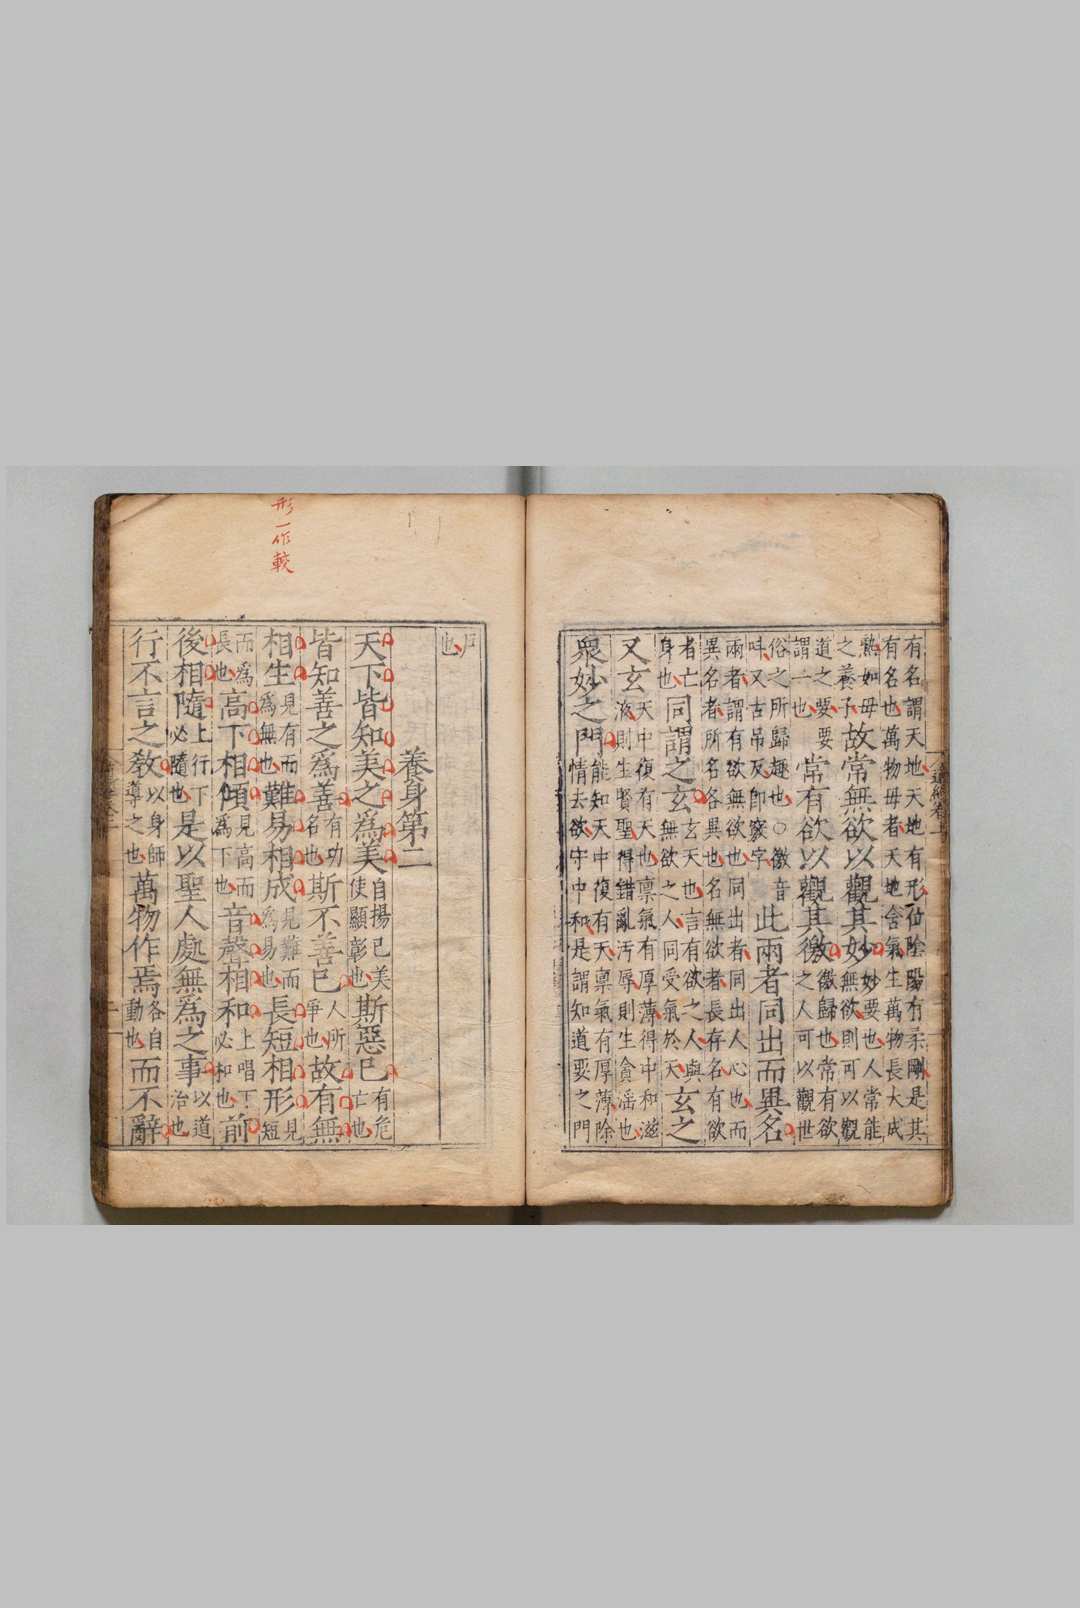 有名謂天地天地有形位陰陽有柔剛是其
有名也萬物母者天地含氣生萬物長大成
熟如母之養子故常無欲以觀其妙妙要也人常能無欲則可以觀
道之要要謂一也常有欲以觀其徼徼歸也常有欲之人可以觀世
俗之所歸趣也○徼音呌又古吊反即竅字此兩者同出而異名
兩者謂有欲無欲也同出者同出人心也而
異名者所名各異也名無欲者長存名有欲
者亡身也同謂之玄玄天也言有欲之人與無欲之人同受氣於天玄之
又玄天中復有天也稟氣有厚薄得中和滋液則生賢聖得錯亂污辱則生貪滛也
衆妙之門能知天中復有天稟氣有厚薄除情去欲守中和是謂知道要之門
戶也
養身第二
天下皆知美之為美自揚己美使顯彰也斯惡已有危亡也
皆知善之為善有功名也斯不善已人所爭也故有無
形一作較
相生見有而為無也難易相成見難而為易也長短相形見短
而為長也高下相傾見高而為下也音聲相和上唱下必和也前
後相隨上行下必隨也是以聖人處無為之事以道治也
行不言之教以身師導之也萬物作焉各自動也而不辭